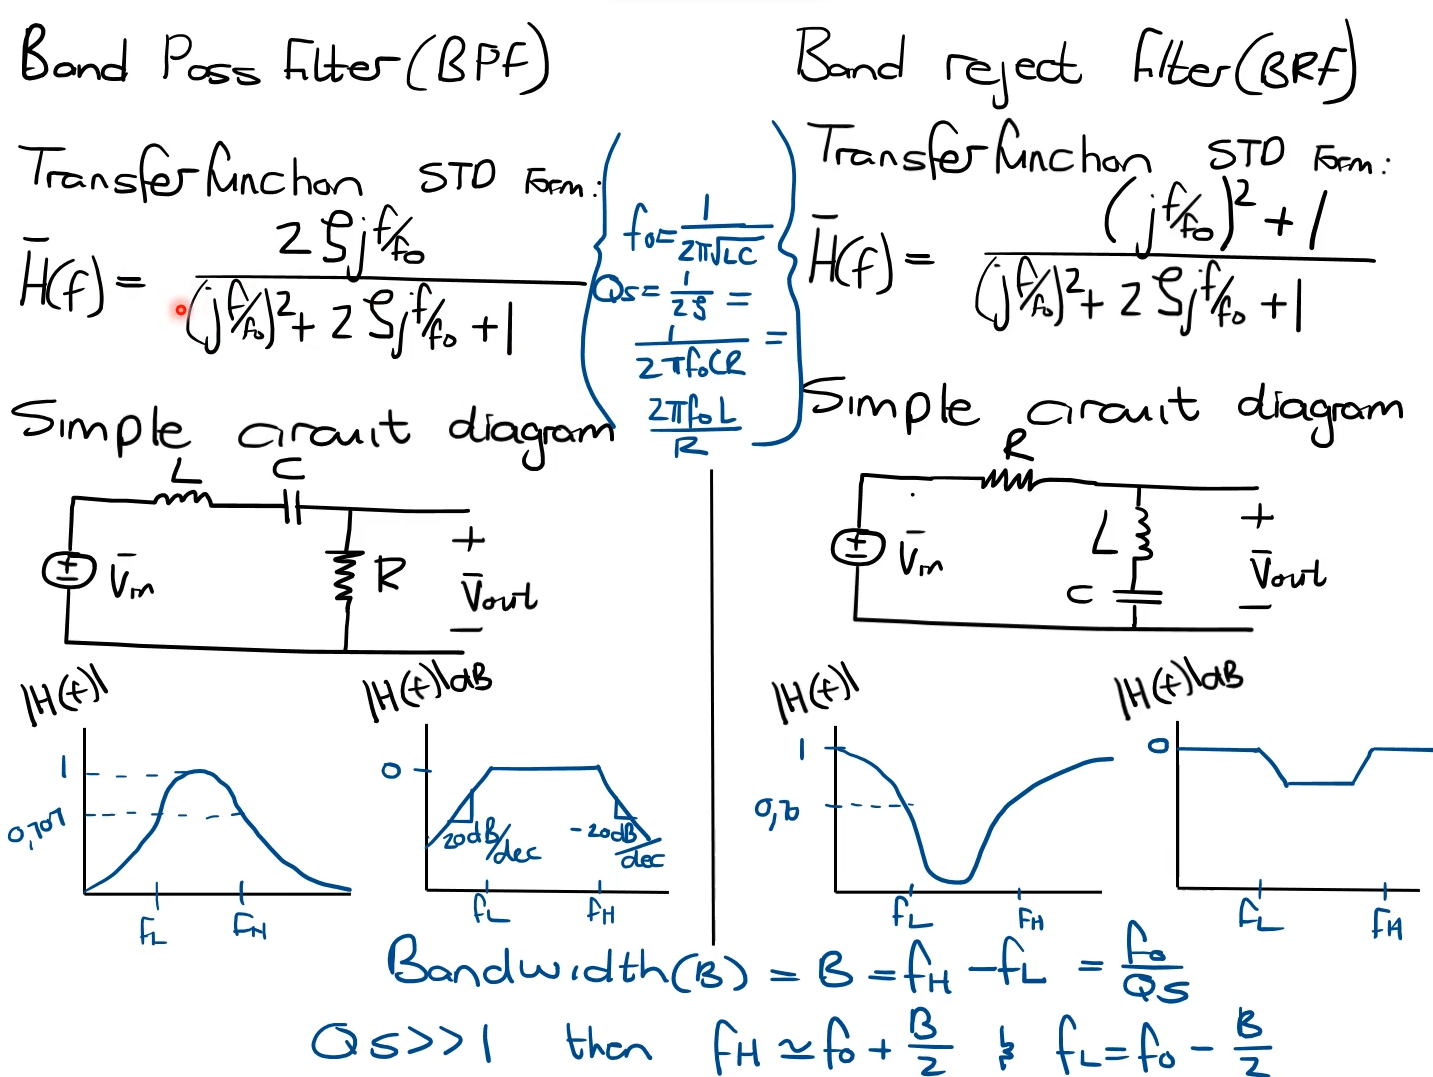 Band Pass Filter (BPF)
Transfer function STD Form:
H̄(f) = 2ζjf/f₀ / (jf/f₀)² + 2ζjf/f₀ + 1
Simple circuit diagram
L C
V̄in
R
+
V̄out
−
|H(f)|
1
0,707
fL fH
|H(f)|dB
0
20dB/dec
-20dB/dec
fL fH
f₀ = 1 / 2π√LC
Qs = 1 / 2ζ =
1 / 2πf₀CR =
2πf₀L / R
Band reject filter (BRF)
Transfer function STD Form:
H̄(f) = (jf/f₀)² + 1 / (jf/f₀)² + 2ζjf/f₀ + 1
Simple circuit diagram
R
V̄in
L
C
+
V̄out
−
|H(f)|
1
0,70
fL fH
|H(f)|dB
0
fL fH
Bandwidth (B) = B = fH − fL = f₀ / Qs
Qs >> 1 then fH ≃ f₀ + B/2 & fL = f₀ − B/2